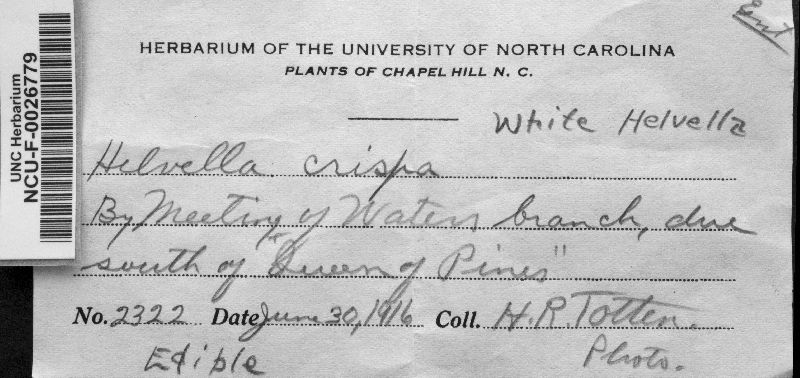 Ent
UNC Herbarium
NCU-F-0026779
HERBARIUM OF THE UNIVERSITY OF NORTH CAROLINA
PLANTS OF CHAPEL HILL N. C.
White Helvella
Helvella crispa
By Meeting of Waters branch, due
south of "Queen of Pines"
No. 2322 Date June 30, 1916 Coll. H.R. Totten.
Edible Photo.